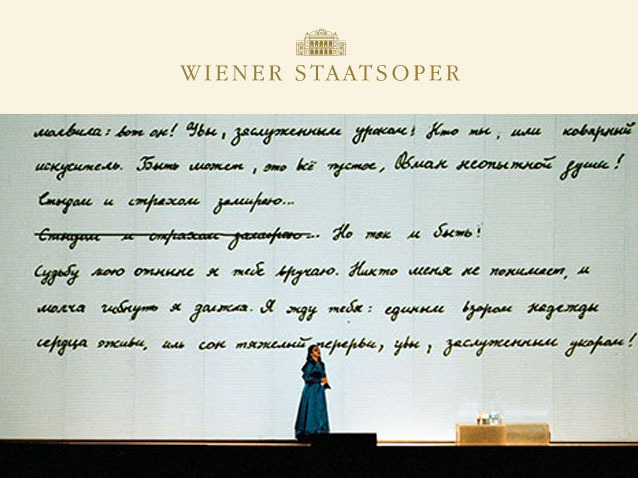 WIENER STAATSOPER
молвила: вот он! Увы, заслуженным укорам! Кто ты, или коварный
искуситель. Быть может, это всё пустое, Обман неопытной души!
Стыдом и страхом замираю...
Стыдом и страхом замираю... Но так и быть!
Судьбу мою отныне я тебе вручаю. Никто меня не понимает, и
молча гибнуть я должна. Я жду тебя: единым взором надежды
сердца оживи, иль сон тяжелый перерви, увы, заслуженным укором!